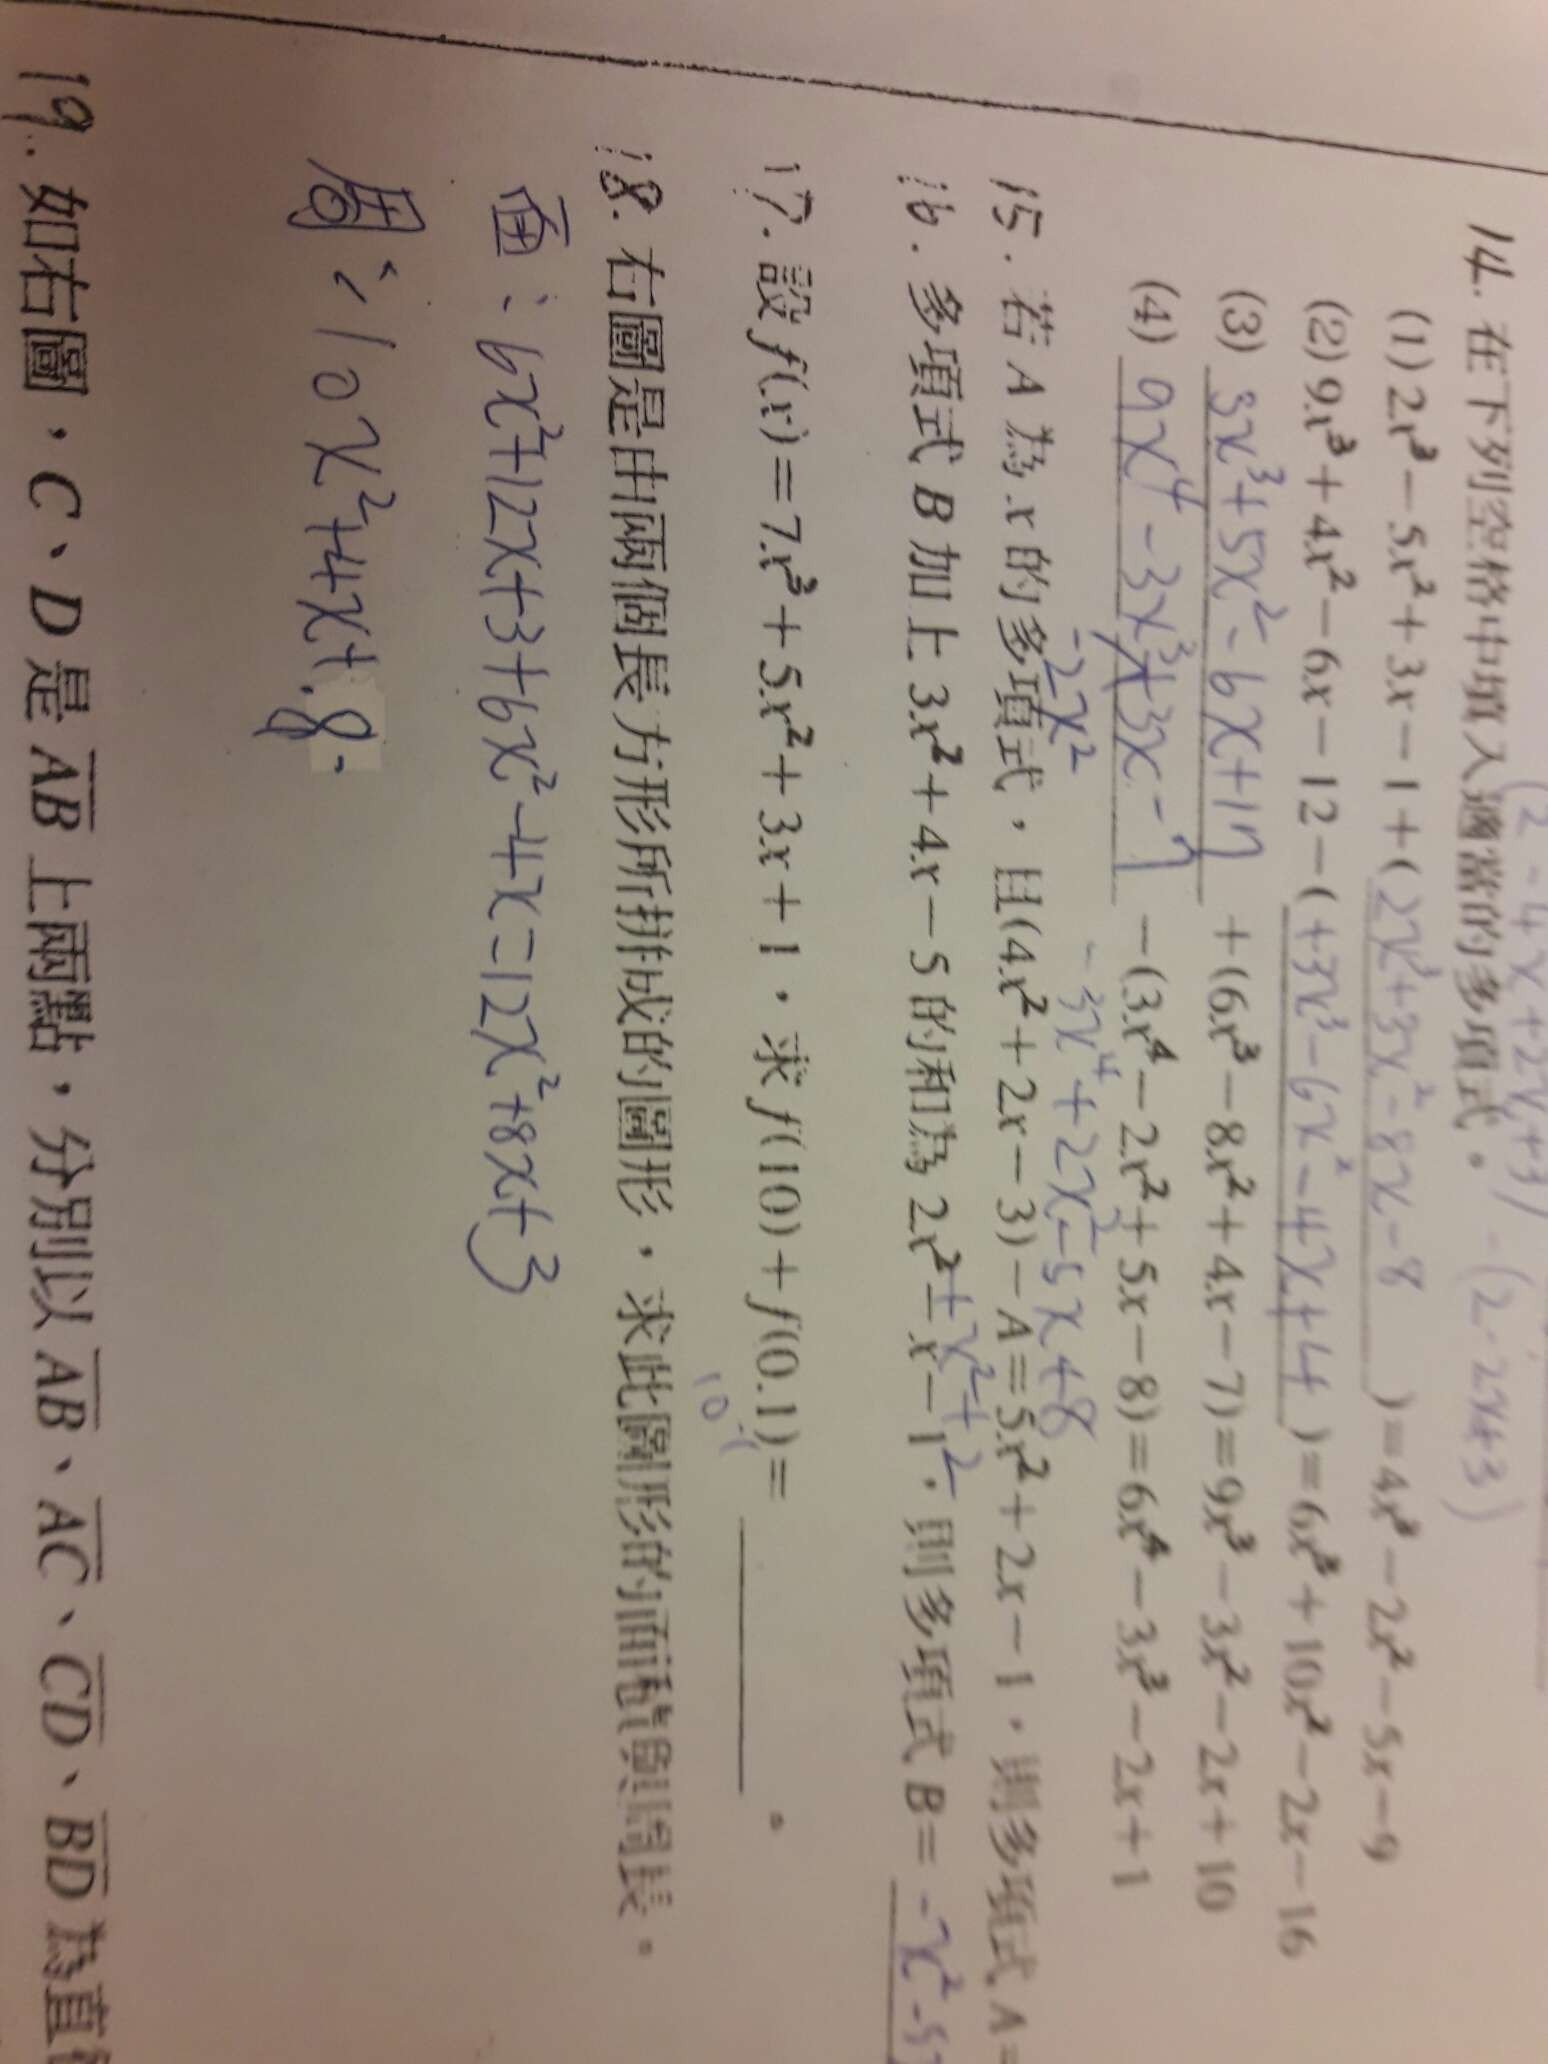 (2-4x+2x+3) - (2-2x+3)
14. 在下列空格中填入適當的多項式。
(1) 2x³-5x²+3x-1+( 2x³+3x²-8x-8 )=4x³-2x²-5x-9
(2) 9x³+4x²-6x-12-( +3x³-6x²-4x+4 )=6x³+10x²-2x-16
(3) 3x³+5x²-6x+17 +(6x³-8x²+4x-7)=9x³-3x²-2x+10
(4) 9x⁴-3x³+3x-7 -(3x⁴-2x²+5x-8)=6x⁴-3x³-2x+1
-2x² -3x⁴+2x²-5x+8
15. 若A為x的多項式,且(4x²+2x-3)-A=5x²+2x-1,則多項式A=
+x²+2
16. 多項式B加上3x²+4x-5的和為2x²-x-1,則多項式B= -x²-5
17. 設f(x)=7x³+5x²+3x+1,求f(10)+f(0.1)= ______。
10⁻¹
18. 右圖是由兩個長方形所拼成的圖形,求此圖形的面積與周長。
面:6x²+12x+3+6x²-4x=12x²+8x+3
周:10x²+4x+8
19. 如右圖,C、D是AB上兩點,分別以AB、AC、CD、BD為直